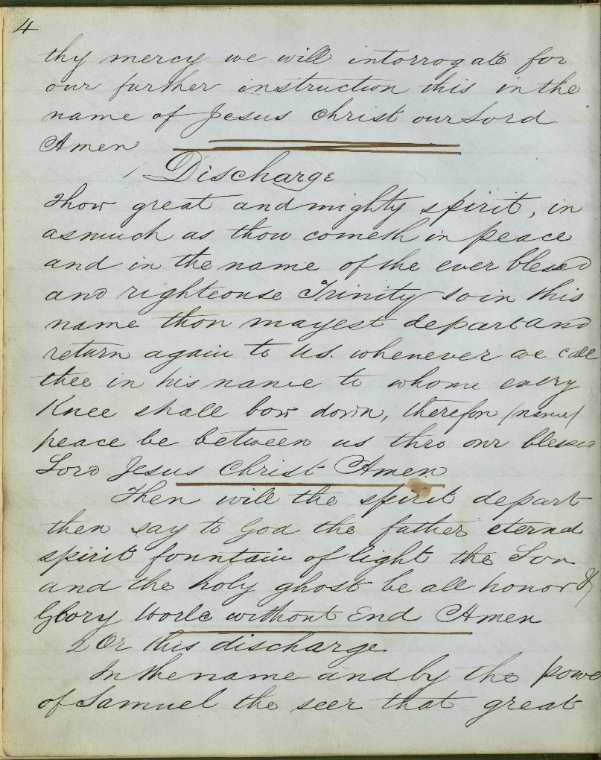 4
thy mercy we will intorrogate for
our further instruction this in the
name of Jesus christ our Lord
Amen
1 Discharge
Thow great and mighty spirit, in
asmuch as thou cometh in peace
and in the name of the ever blesed
and righteouse Trinity so in this
name thou mayest depart and
return again to us whenever we call
thee in his name to whome every
Knee shall bow down, therefor (name)
peace be between us thro our blessed
Lord Jesus Christ Amen
Then will the spirit depart
then say to God the father eternal
spirit fountain of light the Son
and the holy ghost be all honor &
Glory World without End Amen
2 Or this discharge
In the name and by the power
of Samuel the seer that great